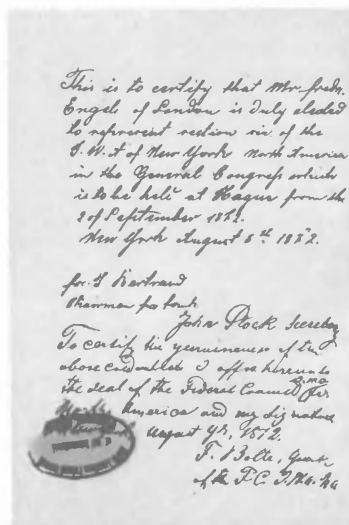 This is to certify that Mr. fredr.
Engels of London is duly elected
to represent section six of the
I. W. A of New York North America
in the General Congress which
is to be held at Hague from the
2 of September 1872.
New York August 6th 1872.
for. T Bertrand
Chairman pro
John Plock Secretary
To certify the genuineness of the
above credentials I affix hereunto
the seal of the Federal Council for
North America and my signature
August 9th, 1872.
F. Bolte,
of the F. C.